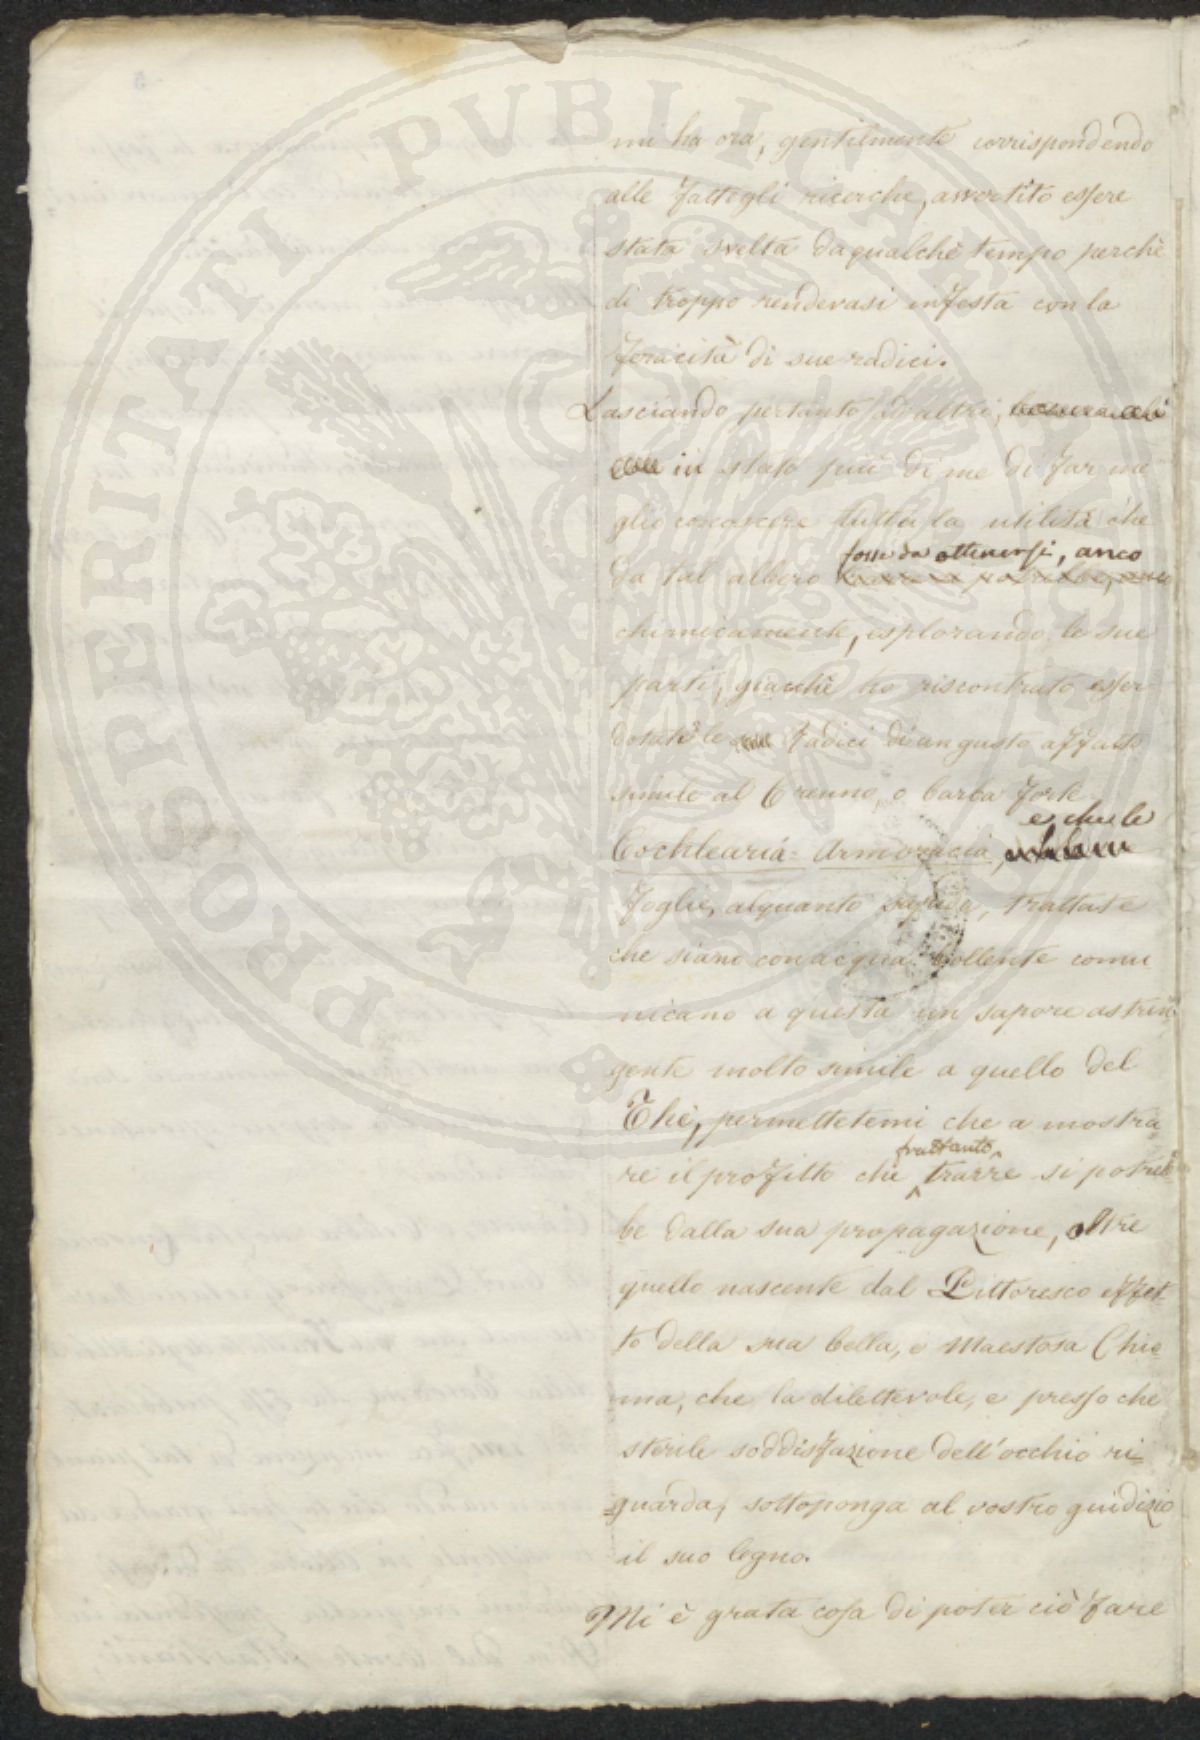 PROSPERITATI PVBLICAE
mi ha ora, gentilmente corrispondendo
alle fattegli ricerche, avvertito essere
stata svelta da qualche tempo perchè
di troppo rendevasi infesta con la
feracità di sue radici.
Lasciando pertanto ad altri,
in stato più di me di far me
glio conoscere tutta la utilità che
fosse da ottenersi, anco
da tal albero
chimicamente, esplorando le sue
parti, giacchè ho riscontrato esser
dotate le radici di un gusto affatto
simile al Crenno, o barba forte
e che le
Cochlearia= Armoracia,
foglie, alquanto sapide, trattate
che siano con acqua bollente comu
nicano a questa un sapore astrin
gente molto simile a quello del
Thè, permettetemi che a mostra
frattanto
re il profitto che trarre si potreb
be dalla sua propagazione, oltre
quello nascente dal Pittoresco effet-
to della sua bella, e Maestosa Chio
ma, che la dilettevole, e presso che
sterile soddisfazione dell'occhio ri=
=guarda, sottoponga al vostro giudizio
il suo legno.
Mi è grata cosa di poter ciò fare